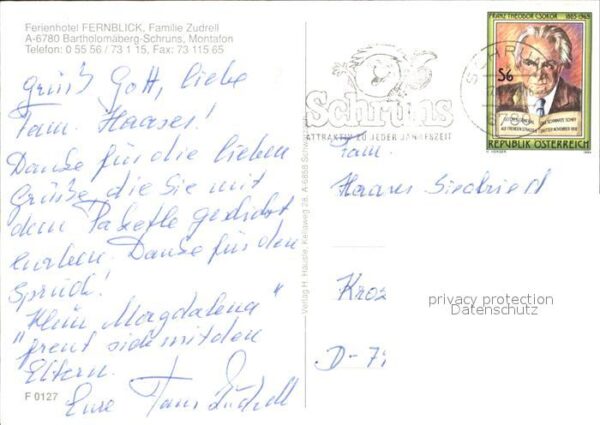 Ferienhotel FERNBLICK, Familie Zudrell
A-6780 Bartholomäberg-Schruns, Montafon
Telefon: 0 55 56 / 73 1 15, Fax: 73 115 65
Grüß Gott, liebe
Fam. Haases!
Danke für die lieben
Grüße, die Sie mit
dem Paketle geschickt
haben. Danke für den
Spruch!
"Klein Magdalena"
freut sich mit den
Eltern.
Eure Fam. Zudrell
F 0127
Verlag H. Häusle, Kehlweg 28, A-6858 Schwarzach
Schruns
ATTRAKTIV ZU JEDER JAHRESZEIT
SCHRUNS
FRANZ THEODOR CSOKOR 1885-1969
S6
REPUBLIK ÖSTERREICH
Fam.
Haases Siegfried
Kroz
D-7
privacy protection
Datenschutz